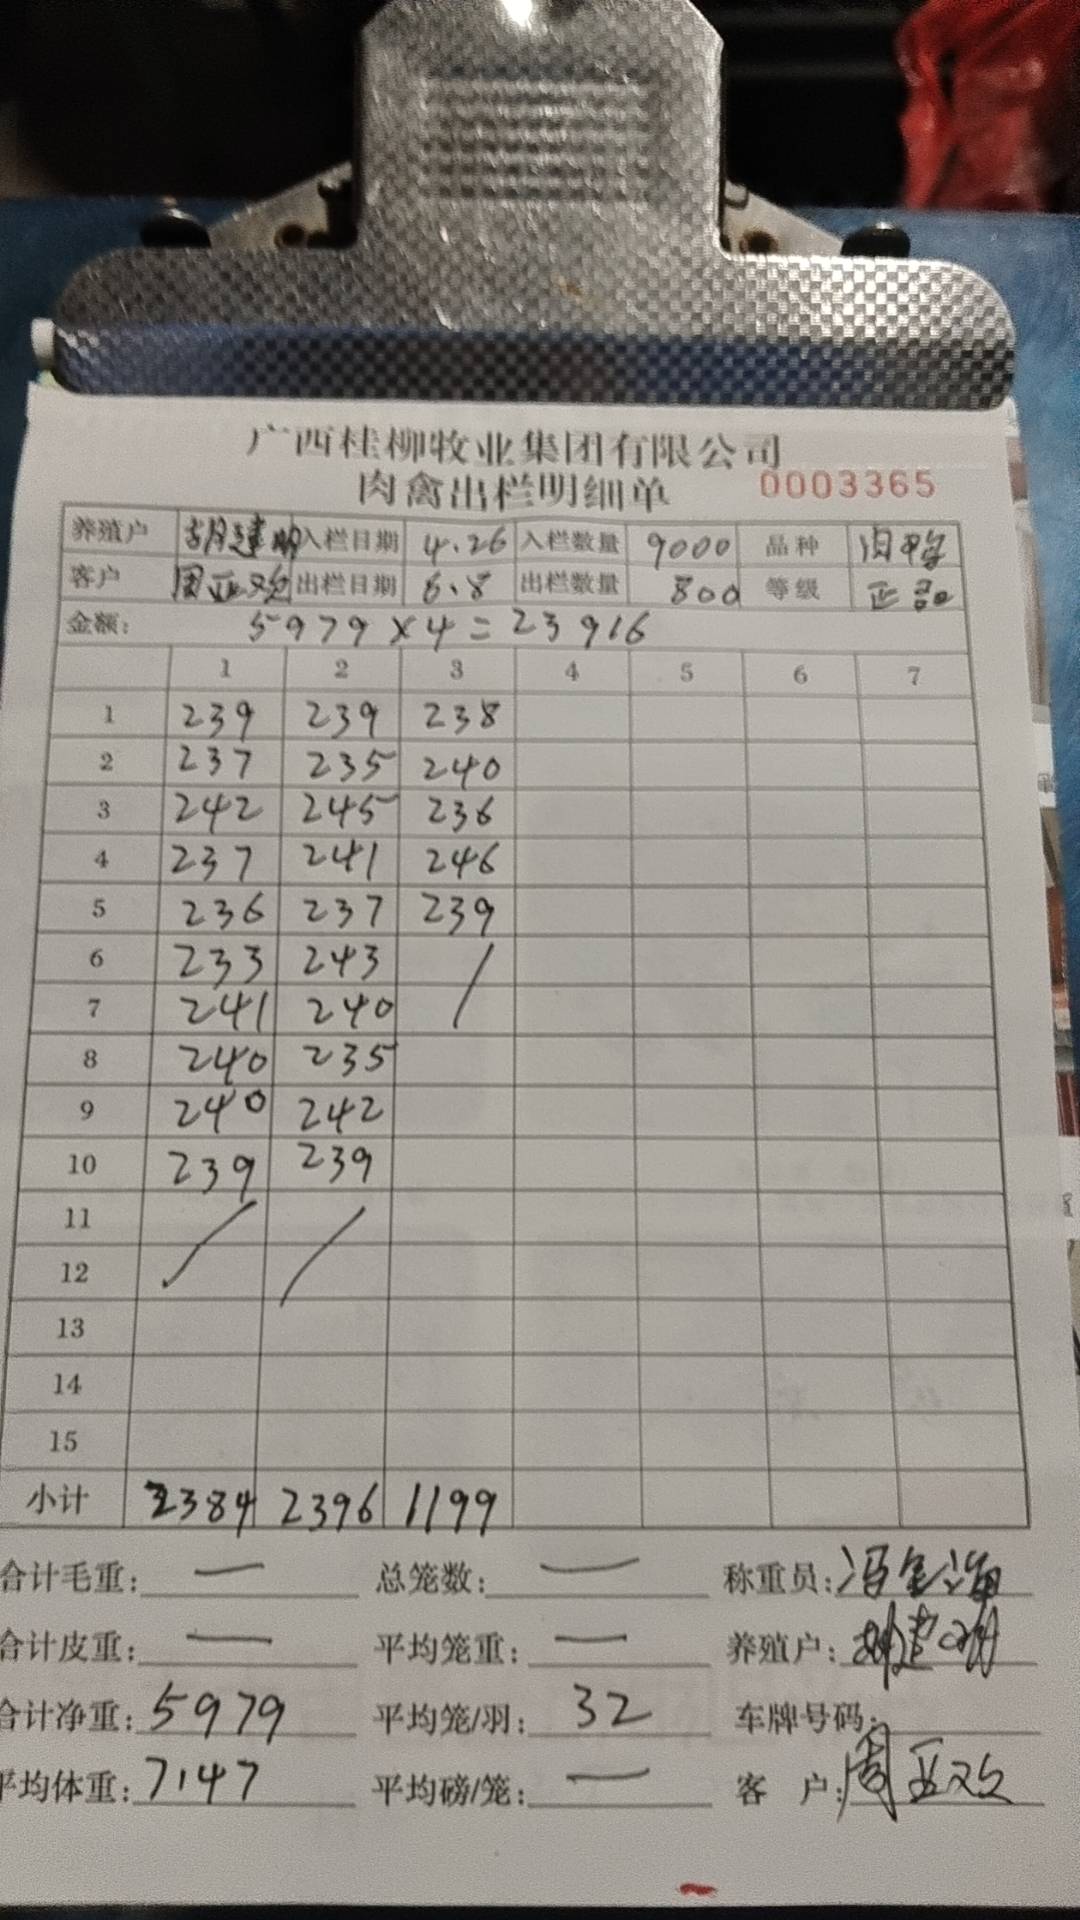 广西桂柳牧业集团有限公司
肉禽出栏明细单 0003365
养殖户 胡建明 入栏日期 4.26 入栏数量 9000 品种 肉鸭
客户 周亚欢 出栏日期 6.8 出栏数量 800 等级 正品
金额: 5979×4=23916
1 2 3 4 5 6 7
1 239 239 238
2 237 235 240
3 242 245 236
4 237 241 246
5 236 237 239
6 233 243
7 241 240
8 240 235
9 240 242
10 239 239
11
12
13
14
15
小计 2384 2396 1199
合计毛重: — 总笼数: — 称重员:
合计皮重: — 平均笼重: — 养殖户: 胡建明
合计净重: 5979 平均笼/羽: 32 车牌号码:
平均体重: 7.47 平均磅/笼: — 客 户: 周亚欢